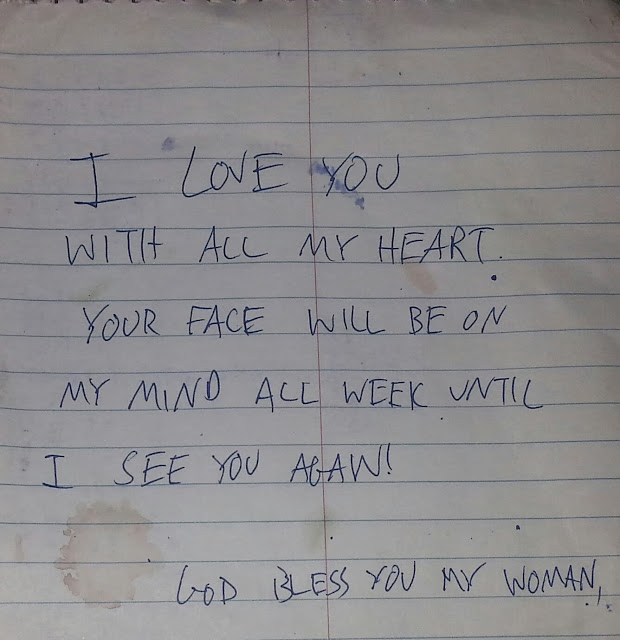 I LOVE YOU
WITH ALL MY HEART.
YOUR FACE WILL BE ON
MY MIND ALL WEEK UNTIL
I SEE YOU AGAIN!
GOD BLESS YOU MY WOMAN,